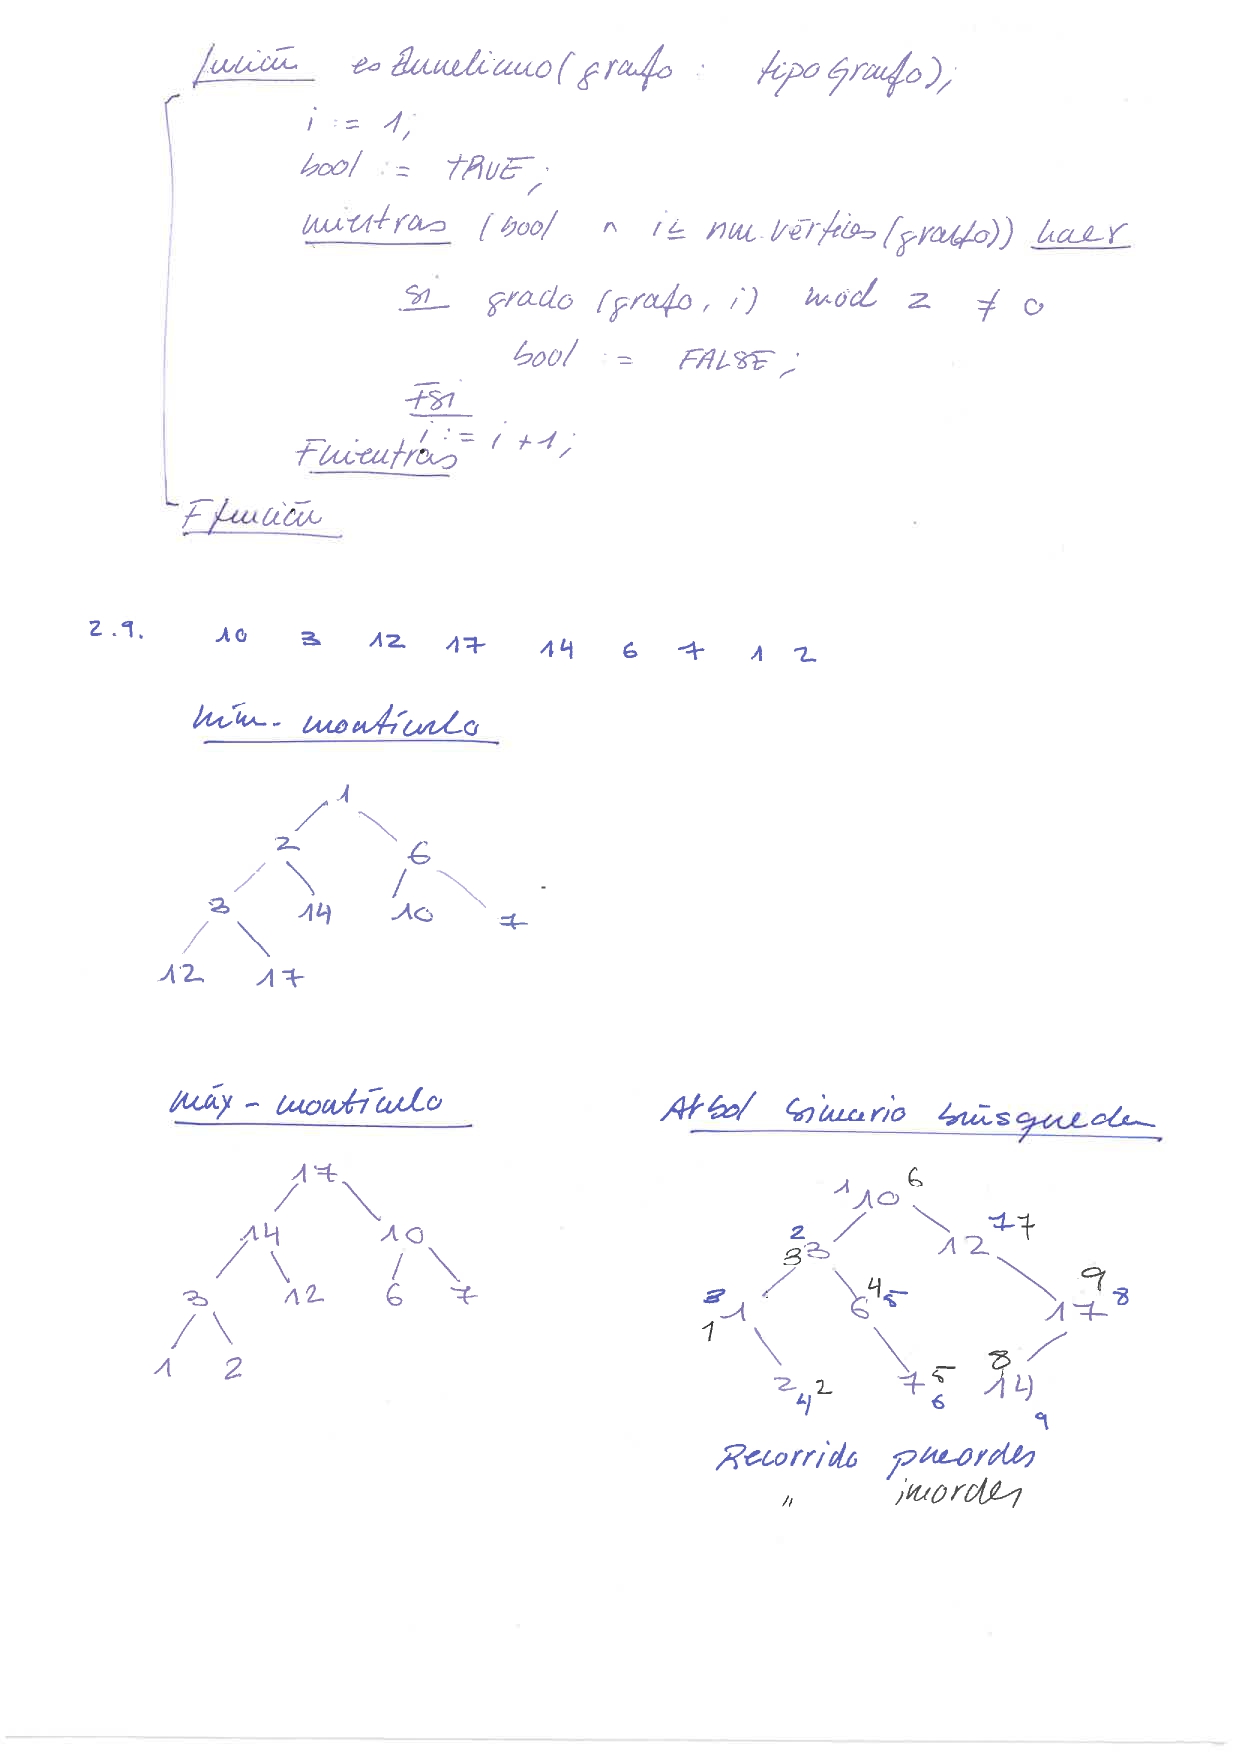 función esEuneliano(grafo : tipoGrafo);
i := 1;
bool := TRUE;
mientras (bool ^ i≤ num.vértices(grafo)) hacer
si grado (grafo, i) mod 2 ≠ 0
bool := FALSE;
Fsi
i := i + 1;
Fmientras
Ffunción
2.9. 10 3 12 17 14 6 7 1 2
mín-montículo
1
2 6
3 14 10 7
12 17
máx-montículo
17
14 10
3 12 6 7
1 2
Arbol binario búsqueda
1 10 6
2 3 3 12 7 7
3 1 1 6 4 5 17 9 8
2 4 2 7 5 6 8 14 9
Recorrido preorden
" inorden